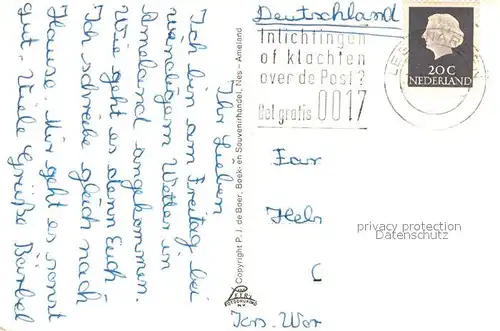 Ihr Lieben
Ich bin am Freitag bei
windigem Wetter in
Ameland angekommen.
Wie geht es denn Euch
Ich schreibe gleich nach
Hause. Mir geht es sonst
gut. Viele Grüße Bärbel
Copyright P. J. de Boer, Boek- en Souvenirhandel, Nes - Ameland
Deutschland
Inlichtingen
of klachten
over de Post?
Bel gratis 0017
20 C
NEDERLAND
Fam
Hel
privacy protection
Datenschutz
Krs. Wor